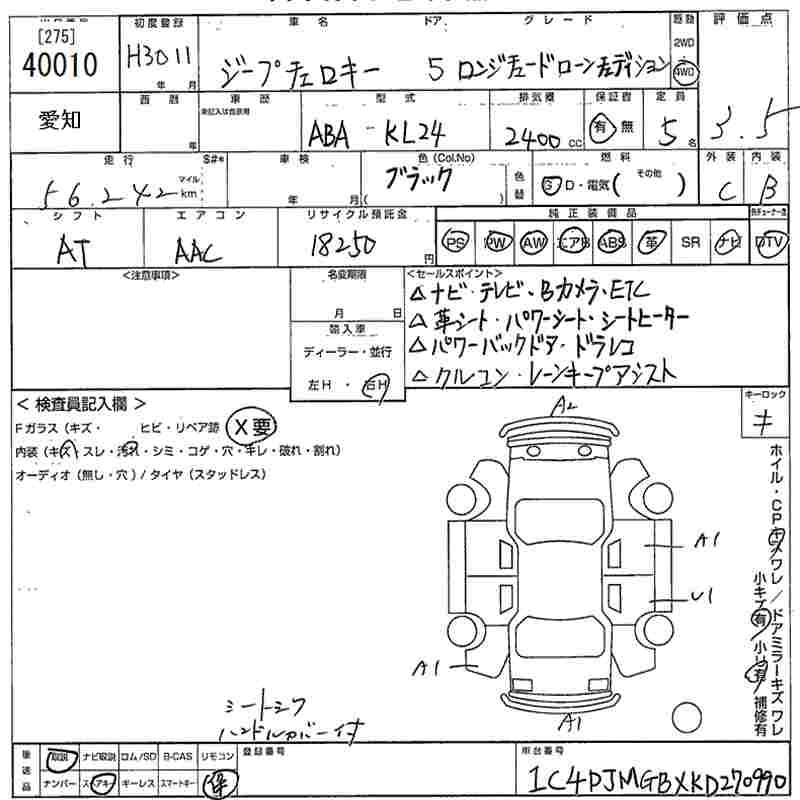 [275]
40010
初度登録
H30 11
年 月
車名 ドア グレード
ジープチェロキー 5 ロンジチュードローンチエディション
駆動
2WD
4WD
評価点
3.5
愛知
西暦
年
車歴
未記入は自家用
型式
ABA - KL24
排気量
2400 cc
保証書
有・無
定員
5名
走行
56,242
マイル
km
S#*
車検
年 月
色(Col.No)
ブラック
( )
色替
燃料
G D・電気( その他 )
外装
C
内装
B
シフト
AT
エアコン
AAC
リサイクル預託金
18250 円
純正装備品
PS PW AW エアB ABS 革 SR ナビ DTV
<注意事項>
名変期限
月 日
輸入車
ディーラー・並行
左H ・ 右H
<セールスポイント>
△ナビ・テレビ・Bカメラ・ETC
△革シート・パワーシート・シートヒーター
△パワーバックドア・ドラレコ
△クルコン・レーンキープアシスト
キーロック
キ
< 検査員記入欄 >
Fガラス(キズ・ ヒビ・リペア跡 X要
内装(キズ・スレ・汚れ・シミ・コゲ・穴・キレ・破れ・割れ)
オーディオ(無し・穴)/タイヤ(スタッドレス)
A2
A1
U1
A1
A1
ホイル・CPキズワレ/ドアミラーキズワレ
小キズ有 小凹有 補修有
シートシワ
ハンドルカバー付
後送品
取説 ナビ取説 ロム/SD B-CAS リモコン
ナンバー スペアキー キーレス スマートキー 保
登録番号
車台番号
1C4PJMGBXKD270990